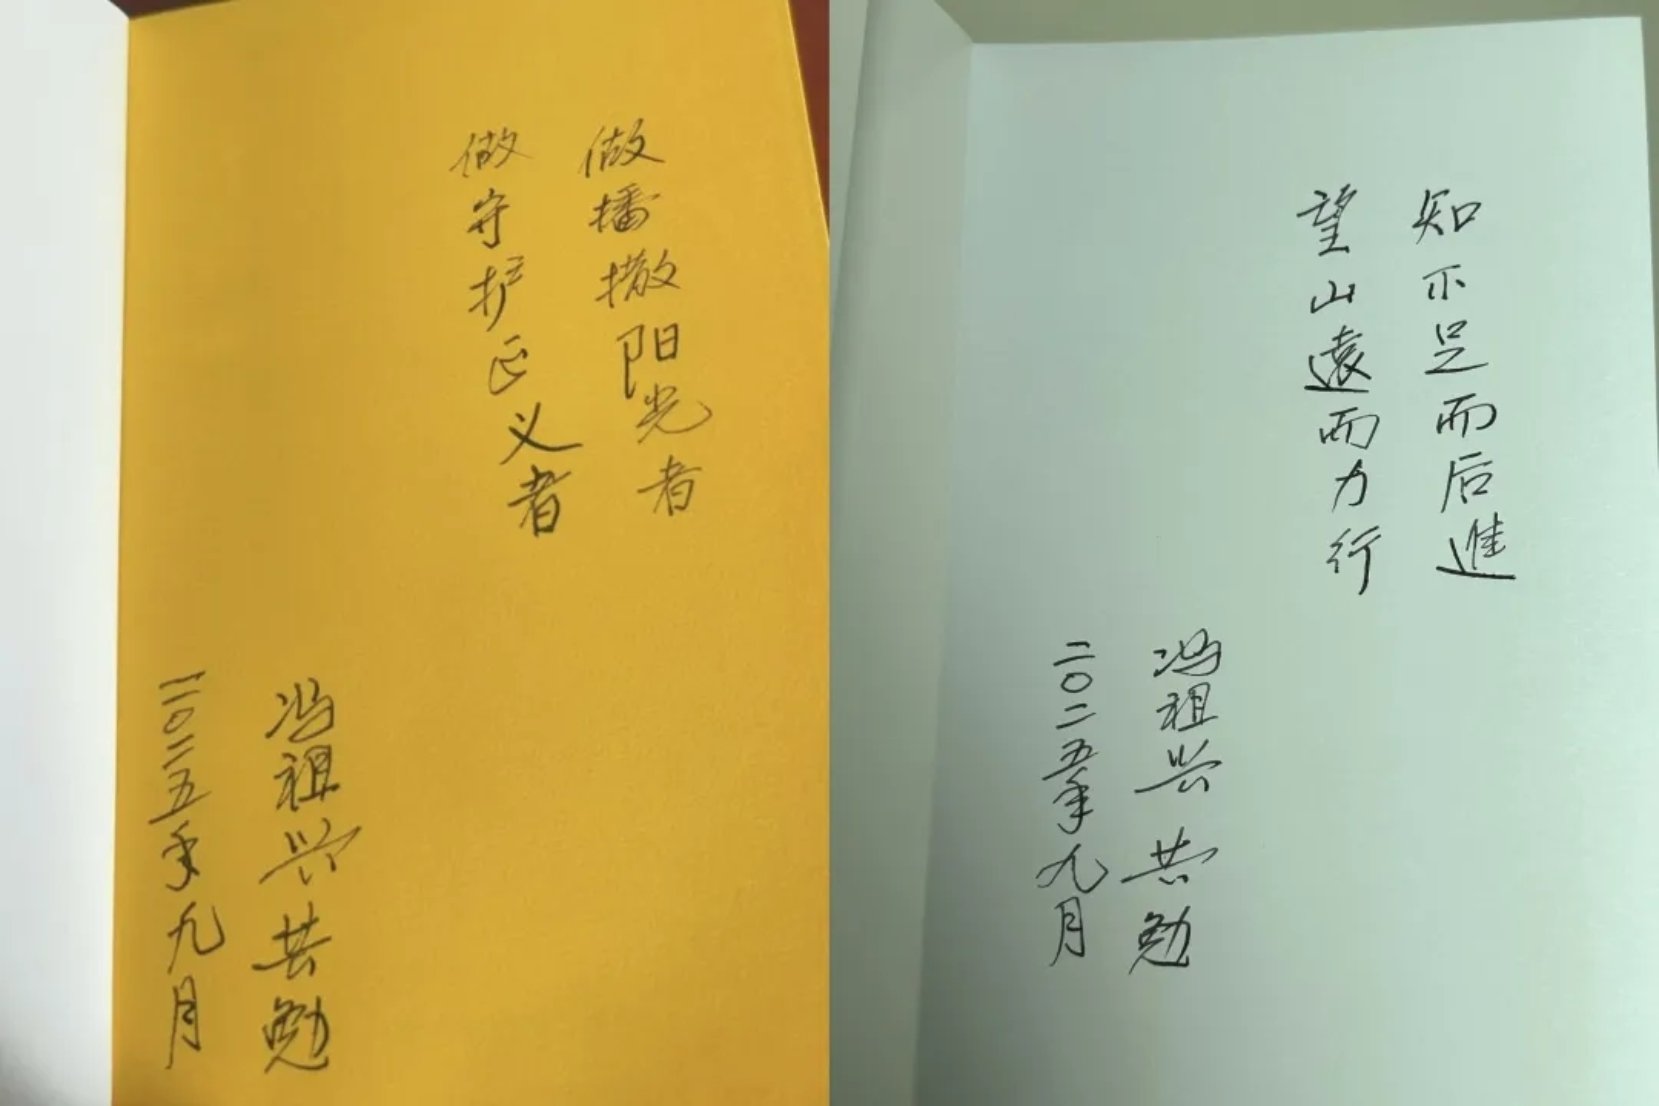 做播撒阳光者
做守护正义者
冯祖兴共勉
二〇二五年九月
知不足而后進
望山遠而力行
冯祖兴共勉
二〇二五年九月